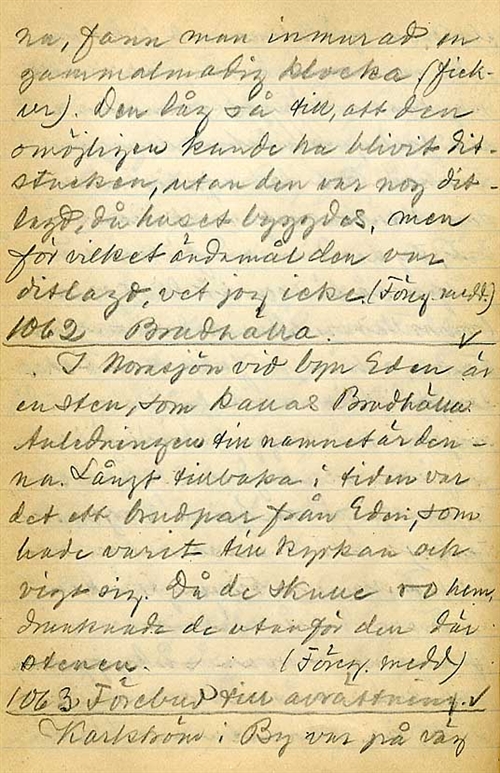 na, fann man inmurad en
gammalmodig klocka (fick-
ur). Den låg så till, att den
omöjligen kunde ha blivit dit-
stucken, utan den var nog dit-
lagd, då huset byggdes, men
för vilket ändamål den var
ditlagd, vet jag icke. (Föreg. medd.)
1062 Brudhälla. ✓
I Norasjön vid byn Eden är
en sten, som kallas Brudhälla.
Anledningen till namnet är den-
na. Långt tillbaka i tiden var
det ett brudpar från Eden, som
hade varit till kyrkan och
vigt sig. Då de skulle ro hem,
drunknade de utanför den där
stenen. (Föreg. medd)
1063 Förebud till avrättning. ✓
Karlström i By var på väg